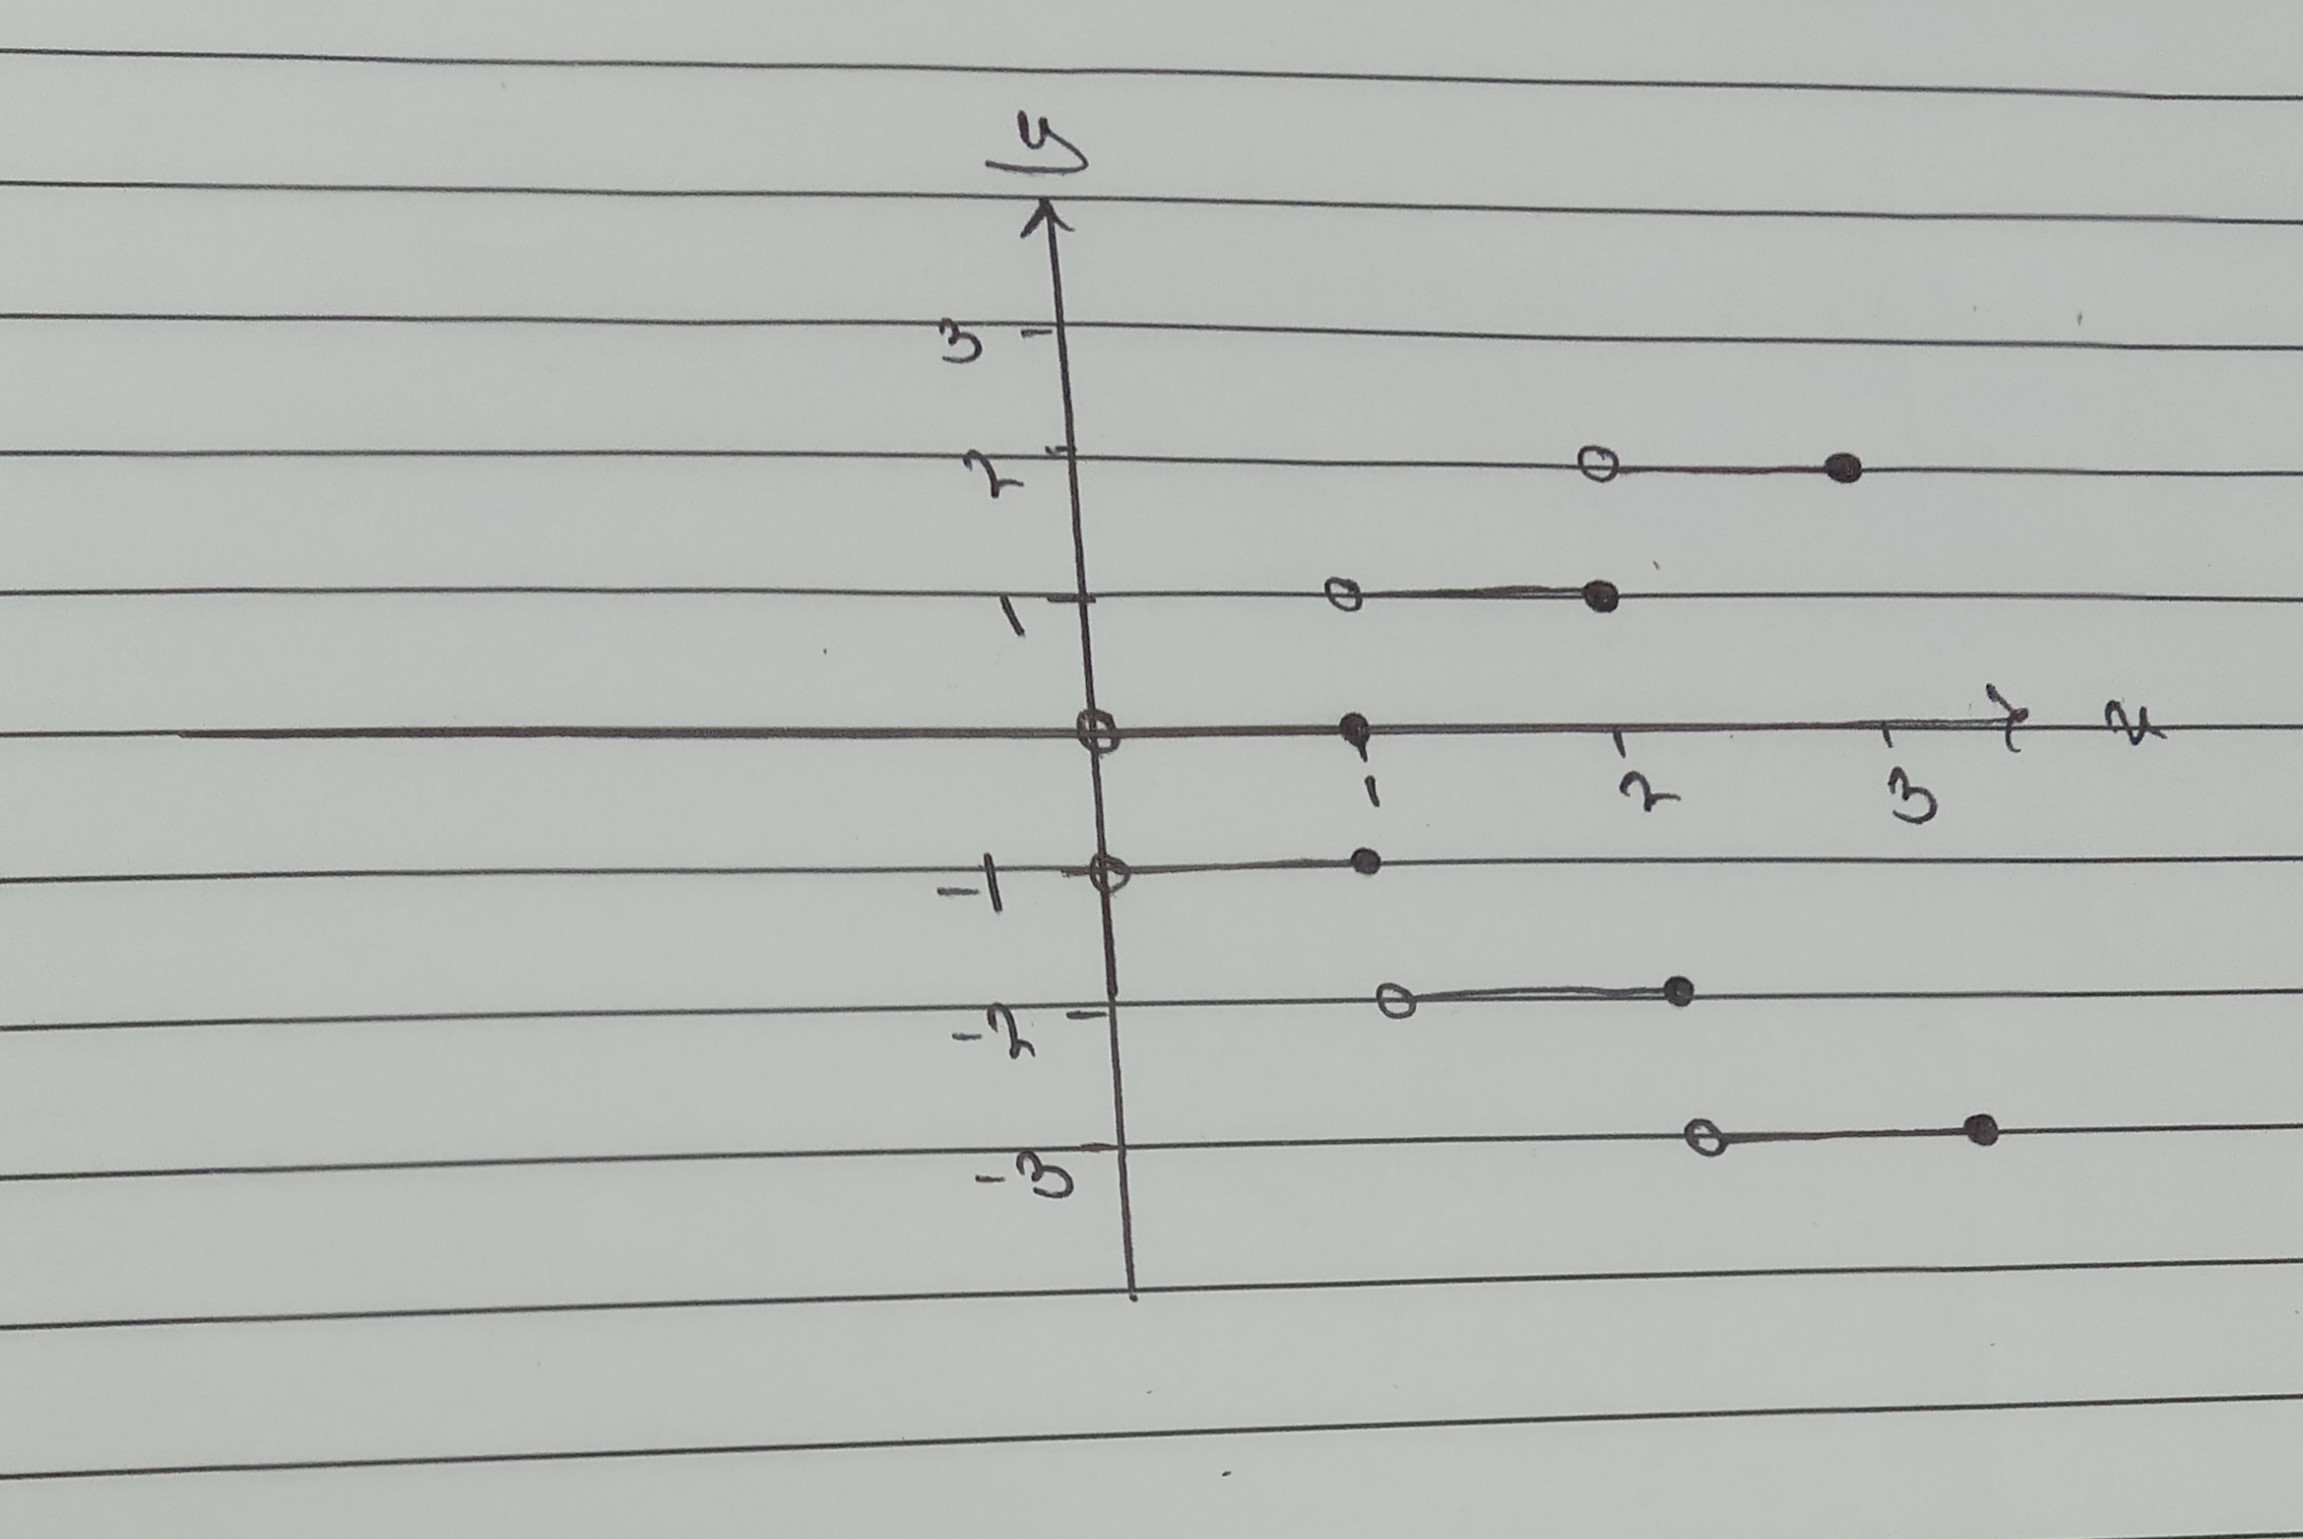 y
3
2
1
x
1
2
3
-1
-2
-3